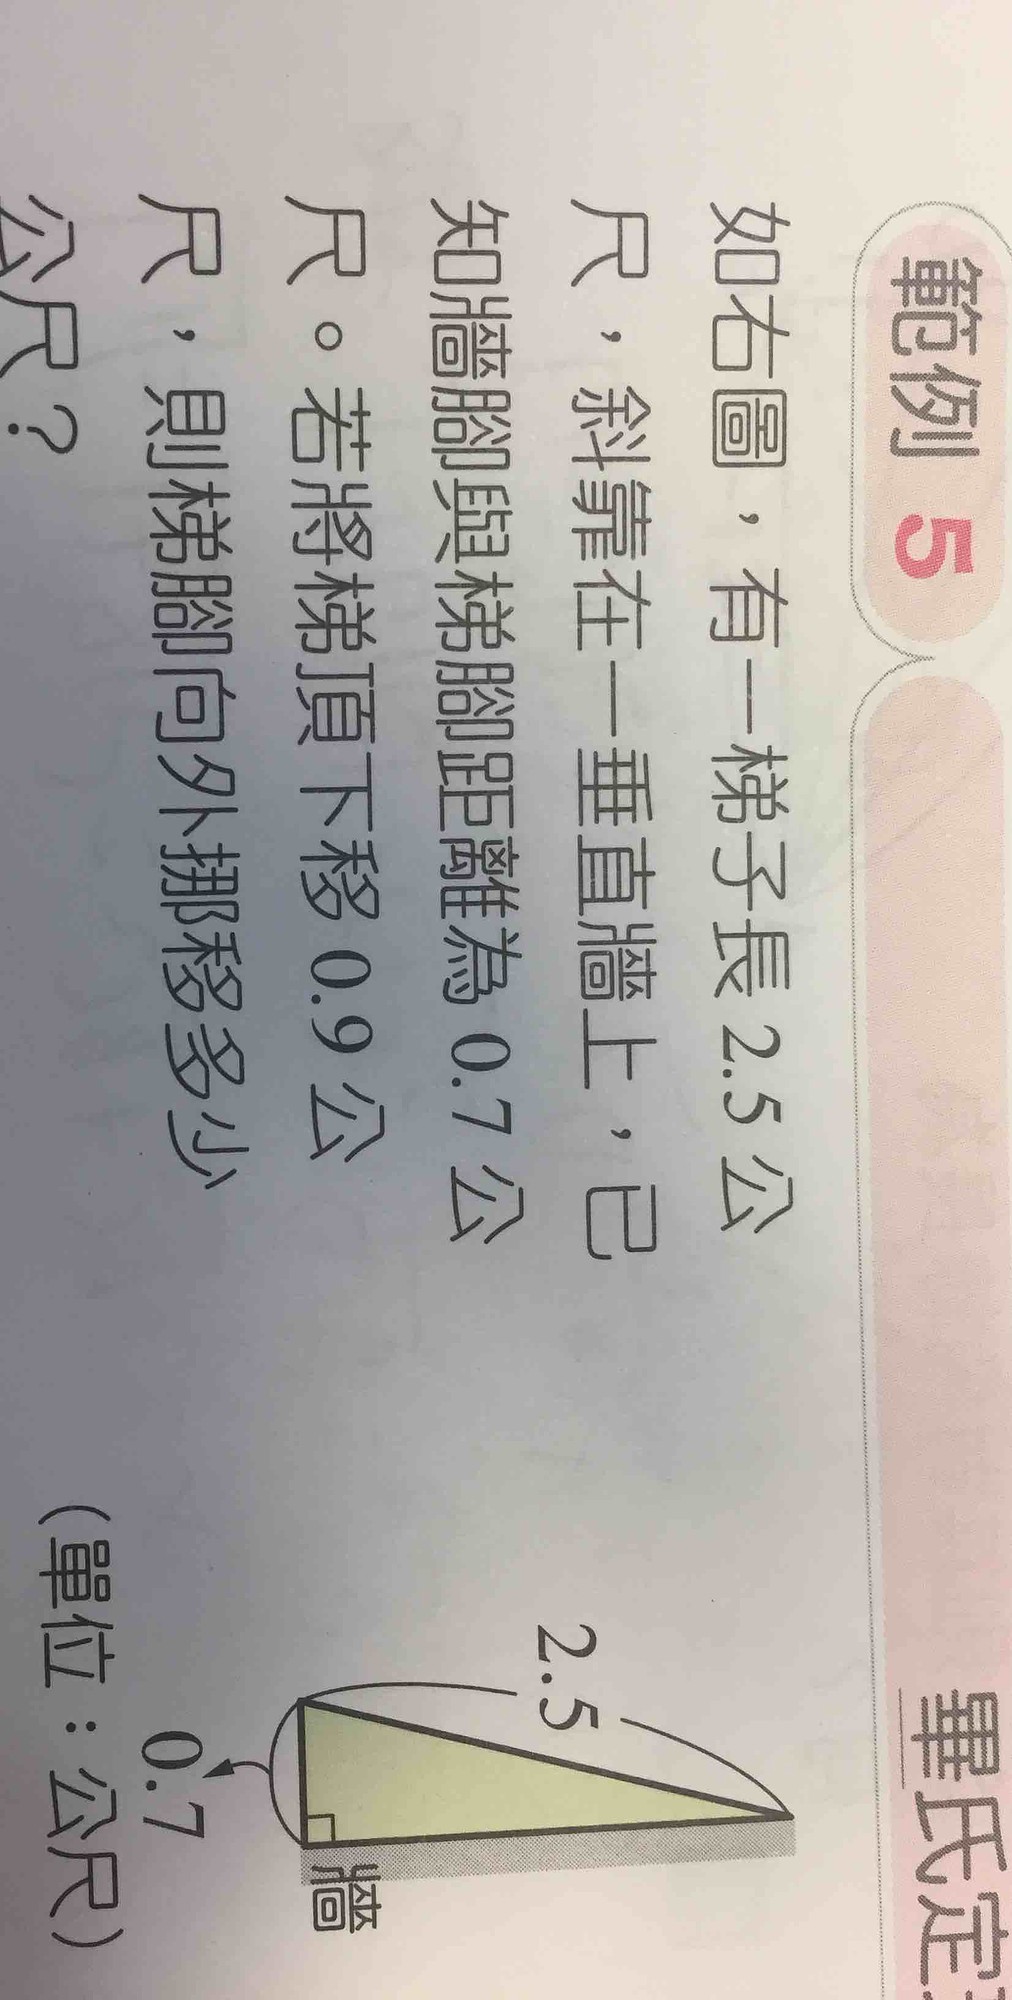 範例 5
畢氏定
如右圖，有一梯子長 2.5 公
尺，斜靠在一垂直牆上，已
知牆腳與梯腳距離為 0.7 公
尺。若將梯頂下移 0.9 公
尺，則梯腳向外挪移多少
公尺？
2.5
牆
0.7
(單位：公尺)